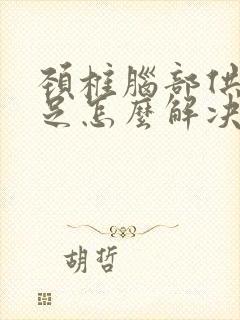 頸椎腦部供
足怎麼解决
胡哲